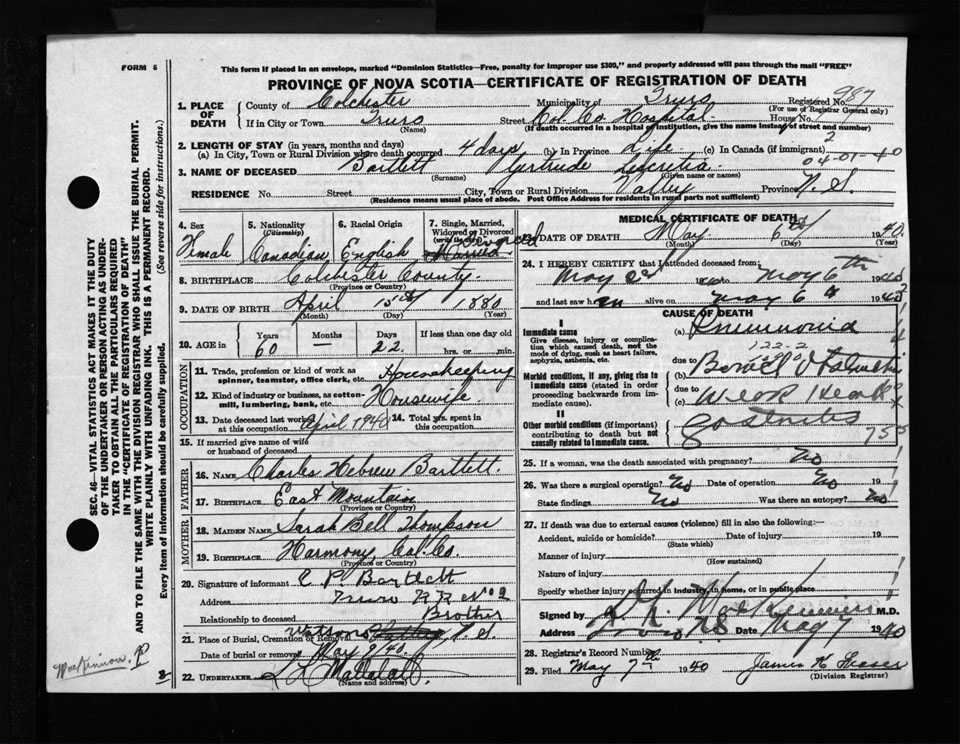 FORM 6
This form if placed in an envelope, marked "Dominion Statistics—Free, penalty for improper use $300," and properly addressed will pass through the mail "FREE"
PROVINCE OF NOVA SCOTIA—CERTIFICATE OF REGISTRATION OF DEATH
1. PLACE OF DEATH
County of Colchester Municipality of Truro Registered No. 987
(For use of Registrar General only)
If in City or Town Truro Street Col. Co. Hospital House No.
(Name) (If death occurred in a hospital or institution, give the name instead of street and number)
2. LENGTH OF STAY (in years, months and days)
(a) In City, Town or Rural Division where death occurred 4 days (b) In Province Life (c) In Canada (if immigrant) 2
04-01-40
3. NAME OF DECEASED Bartlett Gertrude
(Surname) (Given name or names)
RESIDENCE No. Street City, Town or Rural Division Valley Province N. S.
(Residence means usual place of abode. Post Office Address for residents in rural parts not sufficient)
4. Sex Female
5. Nationality (Citizenship) Canadian
6. Racial Origin English
7. Single, Married, Widowed or Divorced (write the word) Married Divorced
8. BIRTHPLACE Colchester County
(Province or Country)
9. DATE OF BIRTH April 15th 1880
(Month) (Day) (Year)
10. AGE in Years 60 Months — Days 22 If less than one day old hrs. or min.
OCCUPATION
11. Trade, profession or kind of work as spinner, teamster, office clerk, etc. Housekeeping
12. Kind of industry or business, as cotton-mill, lumbering, bank, etc. Housewife
13. Date deceased last worked at this occupation April 1940 14. Total yrs. spent in this occupation
15. If married give name of wife or husband of deceased
FATHER
16. NAME Charles Hebrew Bartlett.
17. BIRTHPLACE East Mountain
(Province or Country)
MOTHER
18. MAIDEN NAME Sarah Bell Thompson
19. BIRTHPLACE Harmony, Col. Co.
(Province or Country)
20. Signature of informant C P. Bartlett
Address Truro R R No 2
Relationship to deceased Brother
21. Place of Burial, Cremation or Removal N. S.
Date of burial or removal May 8/40
22. UNDERTAKER
(Name and address)
MEDICAL CERTIFICATE OF DEATH
23. DATE OF DEATH May 6th 1940
(Month) (Day) (Year)
24. I HEREBY CERTIFY that I attended deceased from:
May 2nd to May 6th 1940
and last saw her alive on May 6th 1940
CAUSE OF DEATH
I
Immediate cause
Give disease, injury or complication which caused death, not the mode of dying, such as heart failure, asphyxia, asthenia, etc.
(a) Pneumonia
122-2
due to
Morbid conditions, if any, giving rise to immediate cause (stated in order proceeding backwards from immediate cause).
(b) Bowel
due to
(c) Weak Heart
II
Other morbid conditions (if important) contributing to death but not causally related to immediate cause.
25. If a woman, was the death associated with pregnancy? No
26. Was there a surgical operation? No Date of operation No 19
State findings No Was there an autopsy? No
27. If death was due to external causes (violence) fill in also the following:—
Accident, suicide or homicide? Date of injury 19
(State which)
Manner of injury
(How sustained)
Nature of injury
Specify whether injury occurred in industry, in home, or in public place
Signed by M.D.
Address Truro N.S. Date May 7 1940
28. Registrar's Record Number
29. Filed May 7th 1940 James K
(Division Registrar)
SEC. 46—VITAL STATISTICS ACT MAKES IT THE DUTY OF THE UNDERTAKER OR PERSON ACTING AS UNDERTAKER TO OBTAIN ALL THE PARTICULARS REQUIRED IN THE "CERTIFICATE OF REGISTRATION OF DEATH" AND TO FILE THE SAME WITH THE DIVISION REGISTRAR WHO SHALL ISSUE THE BURIAL PERMIT.
WRITE PLAINLY WITH UNFADING INK. THIS IS A PERMANENT RECORD.
Every item of information should be carefully supplied. (See reverse side for instructions.)
MacKinnon. P